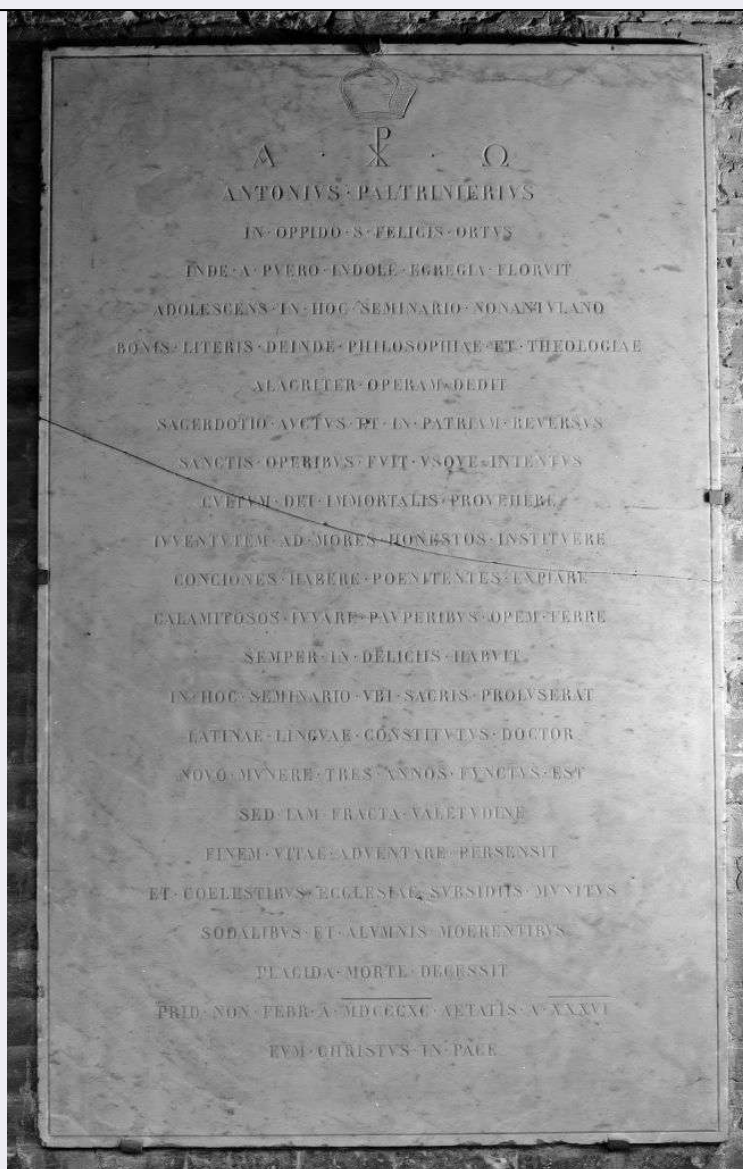 Α · ☧ · Ω
ANTONIVS · PALTRINIERIVS
IN · OPPIDO · S · FELICIS · ORTVS
INDE · A · PVERO · INDOLE · EGREGIA · FLORVIT
ADOLESCENS · IN · HOC · SEMINARIO · NONANTVLANO
BONIS · LITERIS · DEINDE · PHILOSOPHIAE · ET · THEOLOGIAE
ALACRITER · OPERAM · DEDIT
SACERDOTIO · AVCTVS · ET · IN · PATRIAM · REVERSVS
SANCTIS · OPERIBVS · FVIT · VSQVE · INTENTVS
CVLTVM · DEI · IMMORTALIS · PROVEHERE
IVVENTVTEM · AD · MORES · HONESTOS · INSTITVERE
CONCIONES · HABERE · POENITENTES · EXPIARE
CALAMITOSOS · IVVARE · PAVPERIBVS · OPEM · FERRE
SEMPER · IN · DELICIIS · HABVIT
IN · HOC · SEMINARIO · VBI · SACRIS · PROLVSERAT
LATINAE · LINGVAE · CONSTITVTVS · DOCTOR
NOVO · MVNERE · TRES · ANNOS · FVNCTVS · EST
SED · IAM · FRACTA · VALETVDINE
FINEM · VITAE · ADVENTARE · PERSENSIT
ET · COELESTIBVS · ECCLESIAE · SVBSIDIIS · MVNITVS
SODALIBVS · ET · ALVMNIS · MOERENTIBVS
PLACIDA · MORTE · DECESSIT
PRID · NON · FEBR · A · MDCCCXC · AETATIS · A · XXXVI
EVM · CHRISTVS · IN · PACE